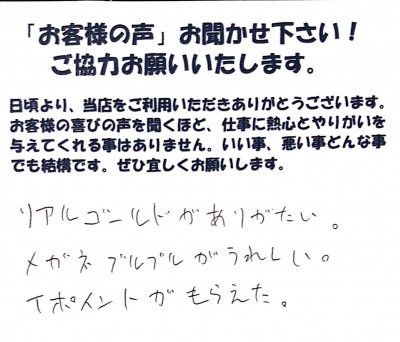 「お客様の声」お聞かせ下さい！
ご協力お願いいたします。
日頃より、当店をご利用いただきありがとうございます。
お客様の喜びの声を聞くほど、仕事に熱心とやりがいを
与えてくれる事はありません。いい事、悪い事どんな事
でも結構です。ぜひ宜しくお願いします。
リアルゴールドがありがたい。
メガネブルブルがうれしい。
Tポイントがもらえた。